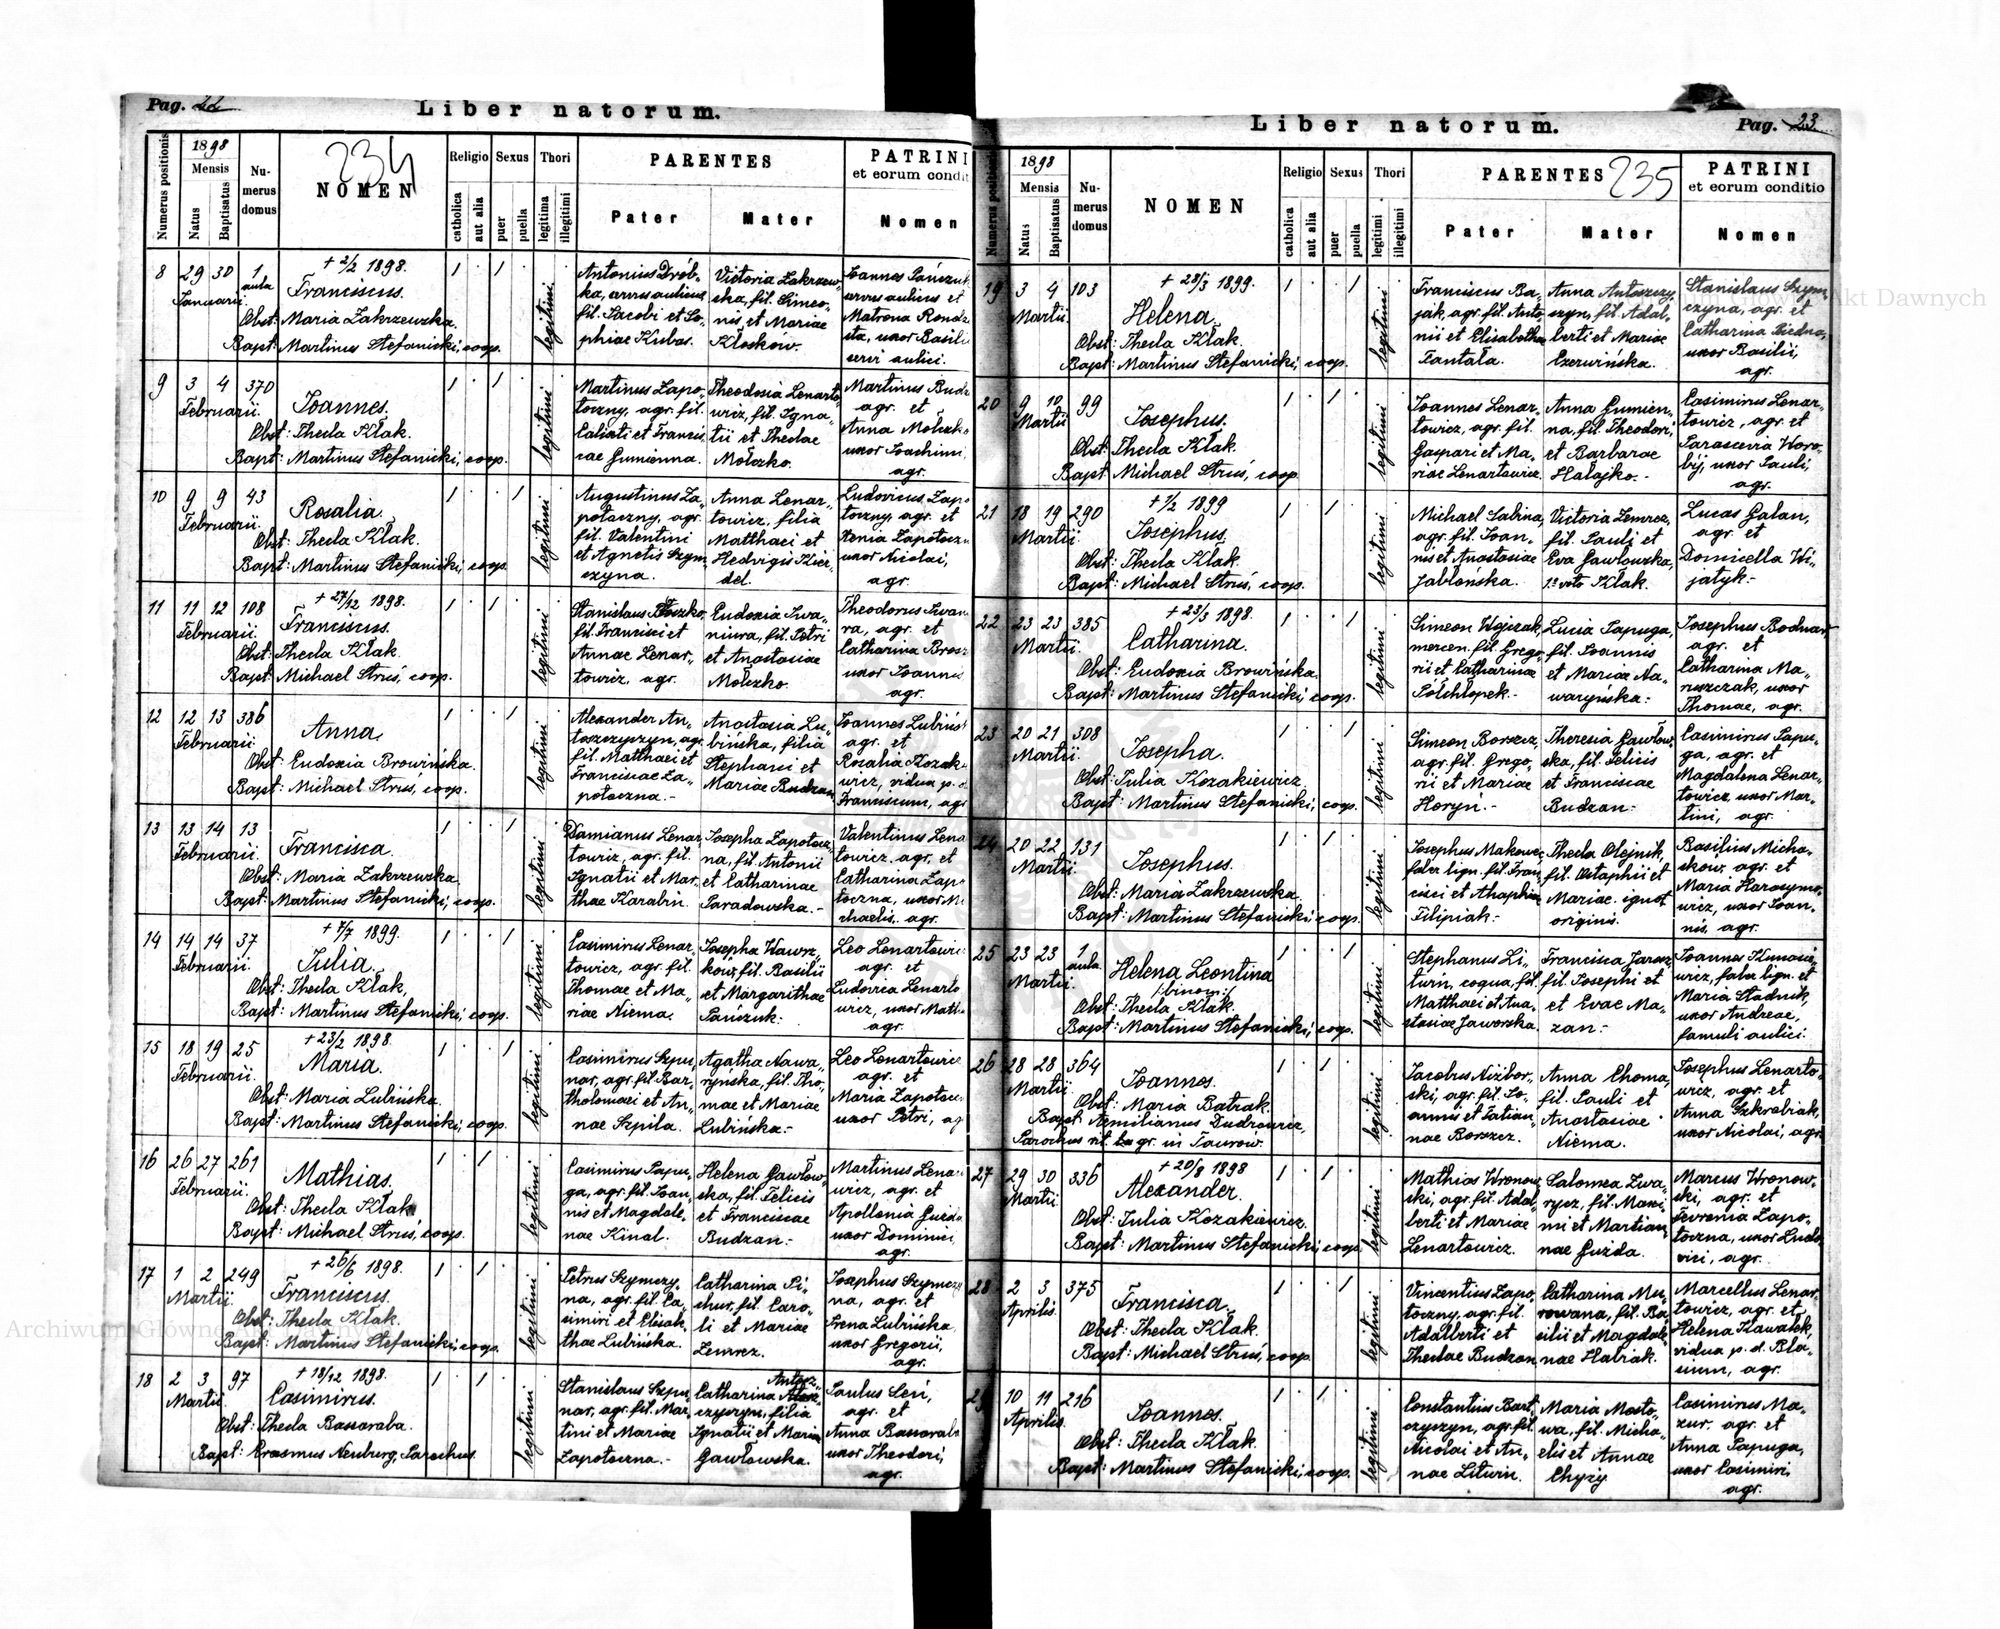 Pag. 22
Liber natorum.
Numerus positionis
1898
Mensis
Natus
Baptisatus
Numerus domus
234
NOMEN
Religio
catholica
aut alia
Sexus
puer
puella
Thori
legitima
illegitimi
PARENTES
Pater
Mater
PATRINI
et eorum condit
Nomen
8 29 30 Januarii 1 aula
+ 2/2 1898.
Franciscus.
Obst: Maria Zakrzewska.
Bapt: Martinus Stefanicki, coop.
legitimi
Antonius Drób-
ka, servus aulicus
fil. Jacobi et So-
phiae Kubas.
Victoria Zakrzew-
ska, fil. Simeo-
nis et Mariae
Kłosków.
Joannes Pańczuk
servus aulicus et
Matrona
uxor Basilii
servi aulici.
9 3 4 Februarii 370
Joannes.
Obst: Thecla Kłak.
Bapt: Martinus Stefanicki, coop.
legitimi
Martinus Zapo-
toczny, agr. fil.
Calixti et Francis-
cae Gumienna.
Theodosia Lenarto-
wicz, fil. Igna-
tii et Theclae
Mołczko.
Martinus Budz
agr. et
Anna Mołczk-
uxor Joachimi,
agr.
10 9 9 Februarii 43
Rosalia.
Obst: Thecla Kłak.
Bapt: Martinus Stefanicki, coop.
legitimi
Augustinus Za-
potoczny, agr.
fil. Valentini
et Agnetis Szym-
czyna.
Anna Lenar-
towicz, filia
Matthaei et
Hedvigis Kier-
del.
Ludovicus Zapo
toczny, agr. et
Xenia Zapotocz
uxor Nicolai,
agr.
11 11 12 Februarii 108
+ 27/12 1898.
Franciscus.
Obst: Thecla Kłak.
Bapt: Michael Struś, coop.
legitimi
Stanislaus
fil. Francisci et
Annae Lenar-
towicz, agr.
Eudoxia Iwa-
niura, fil. Petri
et Anastasiae
Mołczko.
Theodorus Iwan
ra, agr. et
Catharina
uxor Joannis
agr.
12 12 13 Februarii 386
Anna.
Obst: Eudoxia Browińska.
Bapt: Michael Struś, coop.
legitimi
Alexander An-
toszczyszyn, agr.
fil. Matthaei et
Franciscae Za-
potoczna.-
Anastasia Lu-
bińska, filia
Stephani et
Mariae Budzan
Joannes Lubińs
agr. et
Rosalia Kozak-
wicz, vidua p. d.
Franciscum, agr
13 13 14 Februarii 13
Francisca.
Obst: Maria Zakrzewska.
Bapt: Martinus Stefanicki, coop.
legitimi
Damianus Lenar-
towicz, agr. fil.
Ignatii et Mar-
thae Karabin.
Josepha Zapotocz-
na, fil. Antonii
et Catharinae
Paradowska.-
Valentinus Lena
towicz, agr. et
Catharina Zapo
toczna, uxor Mi
chaelis, agr.
14 14 14 Februarii 37
+ 7/7 1899.
Julia.
Obst: Thecla Kłak,
Bapt: Martinus Stefanicki, coop.
legitimi
Casimirus Lenar-
towicz, agr. fil.
Thomae et Ma-
riae Niema.
Josepha Wawrz-
ków, fil. Basilii
et Margarithae
Pańczuk.-
Leo Lenartowic
agr. et
Ludovica Lenarto
wicz, uxor Matth
agr.
15 18 19 Februarii 25
+ 23/2 1898.
Maria.
Obst: Maria Lubińska.
Bapt: Martinus Stefanicki, coop.
legitimi
Casimirus Szpu-
nar, agr. fil. Bar-
tholomaei et An-
nae Szpila.
Agatha Nawa-
ryńska, fil. Tho-
mae et Mariae
Lubińska.-
Leo Lenartowic
agr. et
Maria Zapotocz
uxor Petri, ag
16 26 27 Februarii 261
Mathias.
Obst: Thecla Kłak
Bapt: Michael Struś, coop.
legitimi
Casimirus Papu-
ga, agr. fil. Joan-
nis et Magdale-
nae Kinal.
Helena Gawłow-
ska, fil. Felicis
et Franciscae
Budzan.-
Martinus Lena
wicz, agr. et
Apollonia Guzd
uxor Dominici,
agr.
17 1 2 Martii 249
+ 26/6 1898.
Franciscus.
Obst: Thecla Kłak.
Bapt: Martinus Stefanicki, coop.
legitimi
Petrus Szymczy-
na, agr. fil. Ca-
simiri et Elisab-
thae Lubińska.
Catharina Pi-
chur, fil. Caro-
li et Mariae
Zemrez.
Josephus Szymczy
na, agr. et
Irena Lubińska
uxor Gregorii,
agr.
18 2 3 Martii 97
+ 18/12 1898.
Casimirus.
Obst: Thecla Bassaraba.
Bapt: Erasmus Neuburg, Parochus.
legitimi
Stanislaus Szpu-
nar, agr. fil. Mar-
tini et Mariae
Zapotoczna.-
Catharina Antosz-
czyszyn, filia
Ignatii et Mariae
Gawłowska.
Paulus Seń,
agr. et
Anna Bassarab
uxor Theodori,
agr.
Liber natorum.
Pag. 23
Numerus positionis
1898
Mensis
Natus
Baptisatus
Numerus domus
NOMEN
Religio
catholica
aut alia
Sexus
puer
puella
Thori
legitimi
illegitimi
PARENTES
235
Pater
Mater
PATRINI
et eorum conditio
Nomen
19 3 4 Martii 103
+ 28/3 1899.
Helena.
Obst: Thecla Kłak.
Bapt: Martinus Stefanicki, coop.
legitimi
Franciscus Ba-
jak, agr. fil. Anto-
nii et Elisabetha
Tantała.
Anna Antoszczy-
szyn, fil. Adal-
berti et Mariae
Czerwińska.
Stanislaus Szym-
czyna, agr. et
Catharina Biedna,
uxor Basilii,
agr.
20 9 10 Martii 99
Josephus.
Obst: Thecla Kłak.
Bapt: Michael Struś, coop.
legitimi
Joannes Lenar-
towicz, agr. fil.
Gaspari et Ma-
riae Lenartowicz.
Anna Gumien-
na, fil. Theodori
et Barbarae
Hałajko.-
Casimirus Lenar-
towicz, agr. et
Parascevia Woro-
bij, uxor Pauli,
agr.
21 18 19 Martii 290
+ 1/2 1899
Josephus.
Obst: Thecla Kłak.
Bapt: Michael Struś, coop.
legitimi
Michael Sabina,
agr. fil. Joan-
nis et Anastasiae
Jabłońska.
Victoria Zemrez,
fil. Pauli et
Eva Gawłowska,
1º voto Kłak.
Lucas Galan,
agr. et
Domicella Wi-
jatyk.-
22 23 23 Martii 385
+ 23/3 1898.
Catharina.
Obst: Eudoxia Browińska.
Bapt: Martinus Stefanicki, coop.
legitimi
Simeon Wojczak,
mercen. fil. Grego-
rii et Catharinae
Półchłopek.-
Lucia Papuga,
fil. Joannis
et Mariae Na-
waryńska.-
Josephus Bodnar
agr. et
Catharina Ma-
ruszczak, uxor
Thomae, agr.
23 20 21 Martii 308
Josepha.
Obst: Julia Kozakiewicz.
Bapt: Martinus Stefanicki, coop.
legitimi
Simeon Borszcz,
agr. fil. Grego-
rii et Mariae
Horyń.-
Theresia Gawłow-
ska, fil. Felicis
et Franciscae
Budzan.-
Casimirus Papu-
ga, agr. et
Magdalena Lenar-
towicz, uxor Mar-
tini, agr.
24 20 22 Martii 131
Josephus.
Obst: Maria Zakrzewska.
Bapt: Martinus Stefanicki, coop.
legitimi
Josephus Makowe-
faber lign. fil. Fran-
cisci et Ahaphia
Filipiak.-
Thecla Olejnik,
fil. Ostaphii et
Mariae ignot
originis.
Basilius Micha-
sków, agr. et
Maria Harasymo-
wicz, uxor Joan-
nis, agr.
25 23 23 Martii 1 aula.
Helena Leontina
/:binom:/
Obst: Thecla Kłak.
Bapt: Martinus Stefanicki, coop.
legitimi
Stephanus Li-
twin, coquus, fil.
Matthaei et Ana-
stasiae Jaworska.
Francisca Jarosz
fil. Josephi et
et Evae Ma-
zan.-
Joannes Klimowi-
wicz, faber lign. et
Maria Stadnik,
uxor Andreae,
famuli aulici.
26 28 28 Martii 364
Joannes.
Obst: Maria Batrak.
Bapt: Aemilianus Dudrowicz,
Parochus rit. gr. in Taurów.
legitimi
Jacobus Nizbor-
ski, agr. fil. Jo-
annis et Tatian-
nae Borszcz.
Anna Choma,
fil. Pauli et
Anastasiae
Niema.
Josephus Lenarto-
wicz, agr. et
Anna Szkrabiak,
uxor Nicolai, agr.
27 29 30 Martii 336
+ 20/8 1898
Alexander.
Obst: Julia Kozakiewicz.
Bapt: Martinus Stefanicki, coop.
legitimi
Mathias Wronow-
ski, agr. fil. Adal-
berti et Mariae
Lenartowicz.
Salomea Zwa-
rycz, fil. Maxi-
mi et Martian-
nae Guzda.
Marcus Wronow-
ski, agr. et
Fevronia Zapo-
toczna, uxor Ludo-
vici, agr.
28 2 3 Aprilis 375
Francisca.
Obst: Thecla Kłak.
Bapt: Michael Struś, coop.
legitimi
Vincentius Zapo-
toczny, agr. fil.
Adalberti et
Theclae Budzan
Catharina Mu-
rowana, fil. Ba-
silii et Magdale-
nae Habiak.
Marcellus Lenar-
towicz, agr. et
Helena Kawałek,
vidua p. d. Bla-
sium, agr.
29 10 11 Aprilis 216
Joannes.
Obst: Thecla Kłak.
Bapt: Martinus Stefanicki, coop.
legitimi
Constantius Bart-
czyszyn, agr. fil.
Nicolai et An-
nae Litwin.
Maria Mosto-
wa, fil. Micha-
elis et Annae
Chyży
Casimirus Ma-
zur, agr. et
Anna Papuga,
uxor Casimiri,
agr.
Archiwum Główne Akt Dawnych